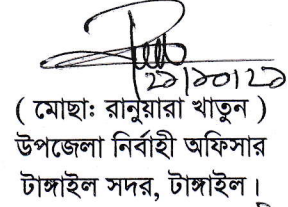 ২১/১০/২১
( মোছাঃ রানুয়ারা খাতুন )
উপজেলা নির্বাহী অফিসার
টাঙ্গাইল সদর, টাঙ্গাইল।